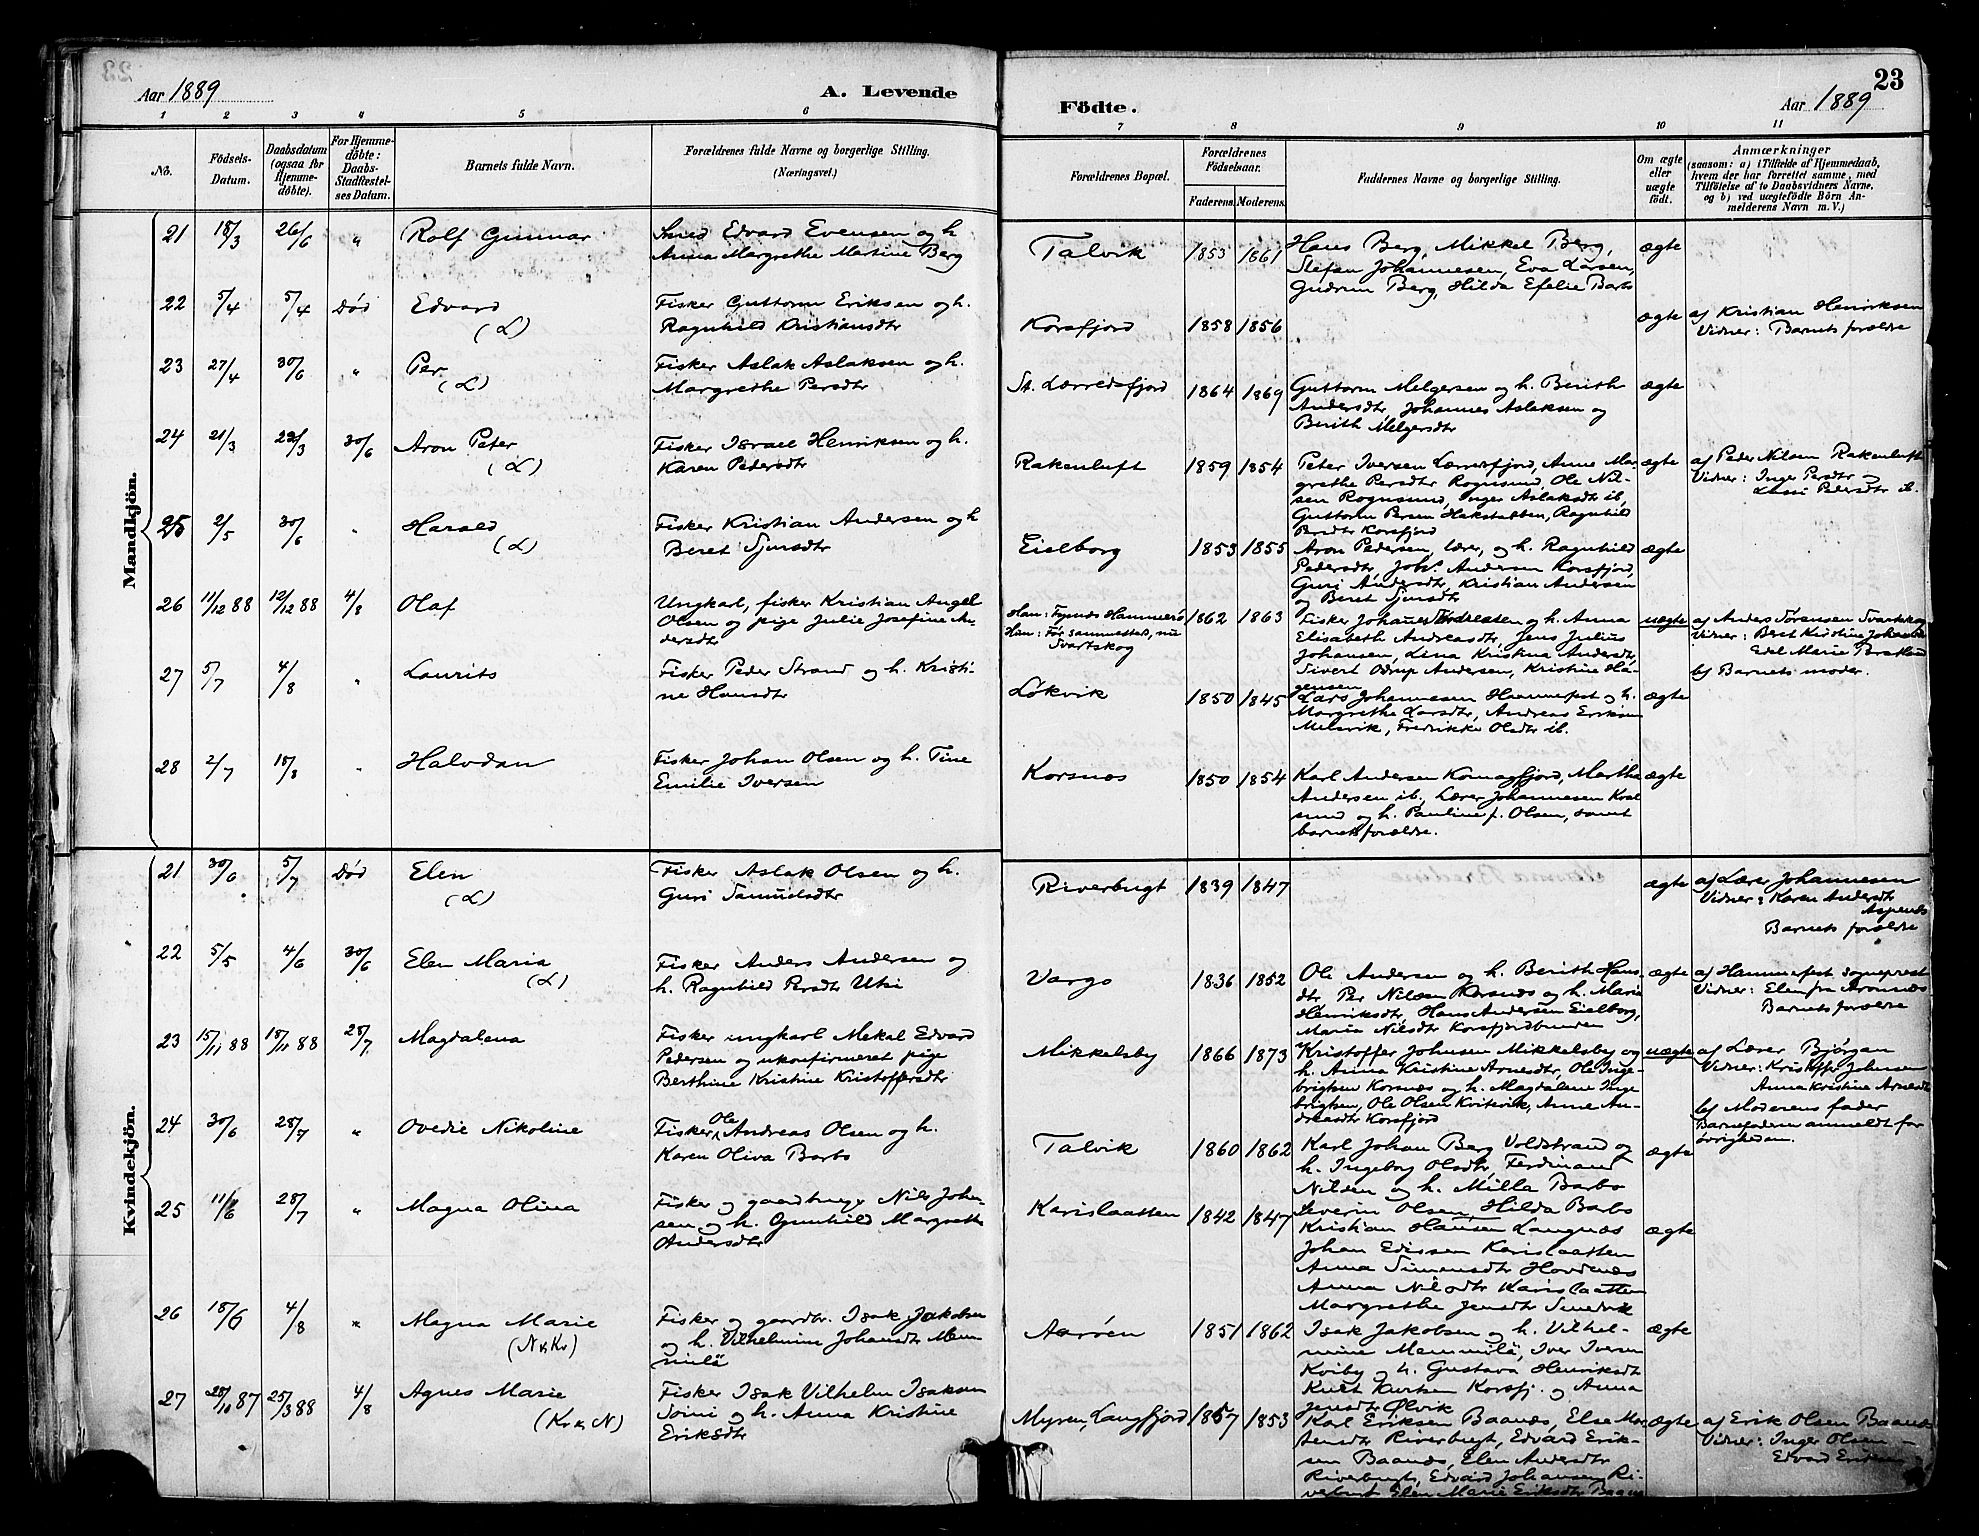 Aar 1889
A. Levende
1 2 3 4 5 6
No.
Födsels-Datum.
Daabsdatum (ogsaa for Hjemmedøbte).
For Hjemmedøbte: Daabs-Stadfæstelses Datum.
Barnets fulde Navn.
Forældrenes fulde Navne og borgerlige Stilling.
(Næringsvei.)
Mandkjön.
21 18/3 26/6 " Rolf Gunnar
Smed Edvard Evensen og h.
Anna Margrethe Martine Berg
22 5/4 5/4 Død Edvard
(L)
Fisker Guttorm Eriksen og h.
Ragnhild Kristiansdtr
23 27/4 30/6 " Per
(L)
Fisker Aslak Aslaksen og h.
Margrethe Persdtr
24 21/3 22/3 30/6 Aron Peter
(L)
Fisker Israel Henriksen og h.
Karen Pedersdtr
25 2/5 30/6 " Harald
(L)
Fisker Kristian Andersen og h
Beret Sjursdtr
26 11/12 88 12/12 88 4/8 Olaf
Ungkarl, fisker Kristian Angel
Olsen og pige Julie Josefine An
dersdtr
27 5/7 4/8 " Laurits
Fisker Peder Strand og h. Kristi-
ne Hansdtr
28 2/7 18/8 " Halvdan
Fisker Johan Olsen og h. Tine
Emilie Iversen
Kvindekjön.
21 30/6 5/7 Død Elen
(L)
Fisker Aslak Olsen og h.
Guri Samuelsdtr
22 5/5 4/6 30/6 Elen Maria
(L)
Fisker Anders Andersen og
h. Ragnhild Persdtr Utsi
23 15/11 88 18/11 88 28/7 Magdalena
Fisker ungkarl Mekal Edvard
Pedersen og ukonfirmeret pige
Berthine Kristine Kristoffersdtr
24 30/6 28/7 " Ovedie Nikoline
Fisker Ole Andreas Olsen og h.
Karen Oliva Barbo
25 11/6 28/7 " Magna Olina
Fisker og gaardbruger Nils Johan-
sen og h. Gunhild Margrethe
Andersdtr
26 18/6 4/8 " Magna Marie
(N & Kv)
Fisker og gaardbr. Isak Jakobsen
og h. Vilhelmine Johansdtr Mem
milä
27 28/11 87 25/3 88 4/8 Agnes Marie
(Kv & N)
Fisker Isak Vilhelm Isaksen
Soini og h. Anna Kristine
Eriksdtr
23
Födte.
Aar 1889
7 8 9 10 11
Forældrenes Bopæl.
Forældrenes Födselsaar.
Faderens. Moderens.
Faddernes Navne og borgerlige Stilling.
Om ægte eller uægte født.
Anmærkninger
(saasom: a) i Tilfælde af Hjemmedaab,
hvem der har forrettet samme, med
Tilföielse af to Daabsvidners Navne,
og b) ved uægtefödte Börn An-
melderens Navn m. V.)
Talvik 1853 1861
Hans Berg, Mikkel Berg,
Stefan Johannesen, Eva Larsen,
Gudrun Berg, Hilda Efelie Barbo
ægte
Korsfjord 1858 1856 ægte
af Kristian Henriksen
Vidner: Barnets forældre
St. Lærredsfjord 1864 1869
Guttorm Melgersen og h. Berith
Andersdtr, Johannes Aslaksen og
Berith Melgersdtr
ægte
Rakenluft 1859 1854
Peter Iversen Lærredsfjord, Anne Mar
grethe Persdtr Rognsund, Ole Nil-
sen Rognsund, Inger Aslaksdtr ib,
Guttorm Persen Hakstabben, Ragnhild
Persdtr Korsfjord
ægte
af Peder Nilsen Rakenluft
Vidner: Inger Persdtr og
Lassi Pedersdtr ib.
Eielborg 1853 1855
Aron Pedersen, lærer, og h. Ragnhild
Pedersdtr, Johs. Andersen Korsfjord,
Guri Andersdtr, Kristian Andersen
og Beret Sjursdtr
ægte
Han: Fugnæs Hammerf.
Hun: Før sammesteds, nu
Svartskog
1862 1863
Fisker Johannes Andreasen og h. Anna
Elisabeth Andreasdtr, Jens Julius
Johansen, Lina Kristina Andersdtr,
Sivert Odrup Andersen, Kristine Ha-
gensen
uægte
af Anders Sørensen Svartskog
Vidner: Berit Kristine Johansen
Edel Marie
b) Barnets moder.
Løkvik 1850 1845
Lars Johannesen Hammerfest og h.
Margrethe Larsdtr, Andreas Eriksen
Melsvik, Fredrikke Olsdtr ib.
ægte
Korsnes 1850 1854
Karl Andersen Komagfjord, Martha
Andersen ib, Lærer Johannesen Kval
sund og h. Pauline f. Olsen, samt
barnets forældre.
ægte
Riverbugt 1839 1847 ægte
af Lærer Johannesen
Vidner: Karen Andersdtr
Aspenæs
Barnets forældre
Vargø 1836 1852
Ole Andersen og h. Berith Hans-
dtr, Per Nilsen Korsnæs og h. Marie
Henriksdtr, Hans Andersen Eielborg,
Maria Nilsdtr Korsfjordbunden
ægte
af Hammerfest sogneprest
Vidner: Elen fra Aronnæs
Barnets forældre
Mikkelsby 1866 1873
Kristoffer Johnsen Mikkelsby og
h. Anna Kristine Arnesdtr, Ole Inge-
brigtsen Korsnæs og h. Magdalene Inge
brigtsen, Ole Olsen Kvitevik, Anne An-
dreasdtr Korsfjord
uægte
af Lærer Bjørgan
Vidner: Kristoffer Johnsen
Anna Kristine Arnesdtr
b) Moderens fader
Barnefaderen anmeldt for
øvrigheden.
Talvik 1860 1862
Karl Johan Berg Voldstrand og
h. Ingeborg Olsdtr, Ferdinand
Nilsen og h. Milla Barbo
Severin Olsen, Hilda Barbo
ægte
Karislaatten 1842 1847
Kristian Hansen Langnæs
Johan Edissen Karislaatten
Anna Simonsdtr Hordenæs
Anna Nilsdtr Karislaatten
Margrethe Jensdtr Smedvik
ægte
Aarøen 1851 1862
Isak Jakobsen og h. Vilhel-
mine Memmilä, Iver Iversen
Kviby og h. Gustava Henriksdtr
Knut Knutsen Korsfj. og Anna
Jensdtr Ølvik
ægte
Myren, Langfjord 1857 1853
Karl Eriksen Baanæs, Else Mor
tensdtr Riverbugt, Edvard Erik-
sen Baanæs, Elen Andersdtr
Riverbugt, Edvard Johansen Ri-
verbugt, Elen Marie Eriksdtr Baanæs
ægte
af Erik Olsen Baanæs
Vidner: Inger Olsen
Edvard Eriksen